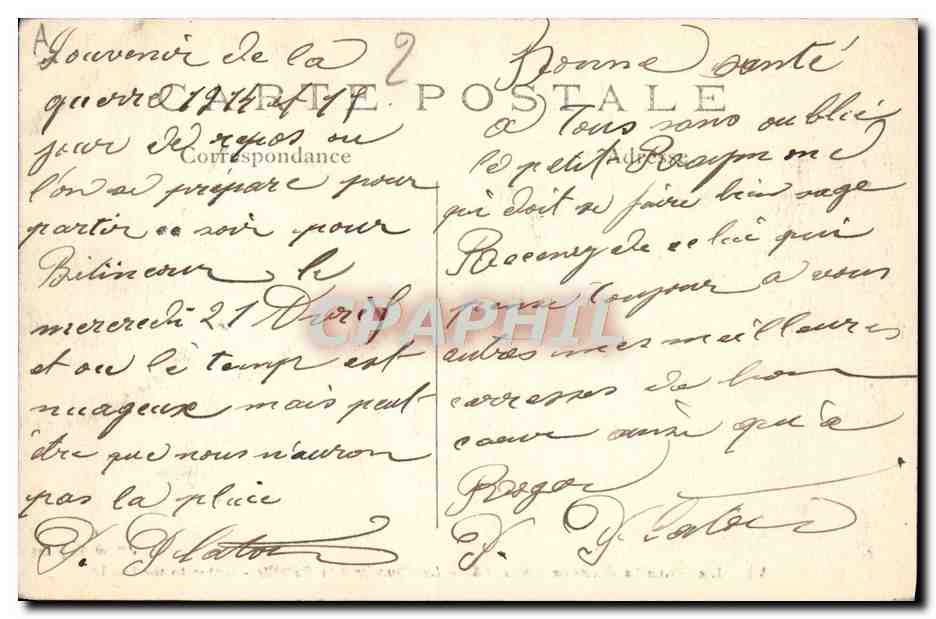 A
2
CARTE POSTALE
Correspondance
Adresse
Souvenir de la
guerre 1914 et 17
jour de repos ou
l'on se prépare pour
partir ce soir pour
le
mercredi 21 Avril
et ou le temp est
nuageux mais peut-
être que nous n'auron
pas la pluie
P. Platon
Bonne santé
a tous sans oublié
le petit Raymond
qui doit se faire bien sage
de celui qui
pense toujour a vous
autres mes meilleures
carresses de bon
coeur ainsi qu'à
Roger
P. Platon
CPAPHIL